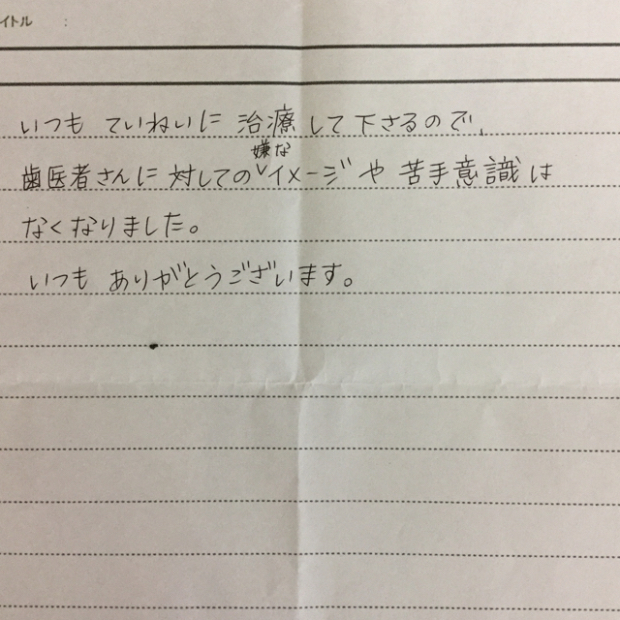 イトル :
いつも ていねいに 治療して下さるので、
嫌な
歯医者さんに 対しての イメージや 苦手意識は
なくなりました。
いつも ありがとうございます。